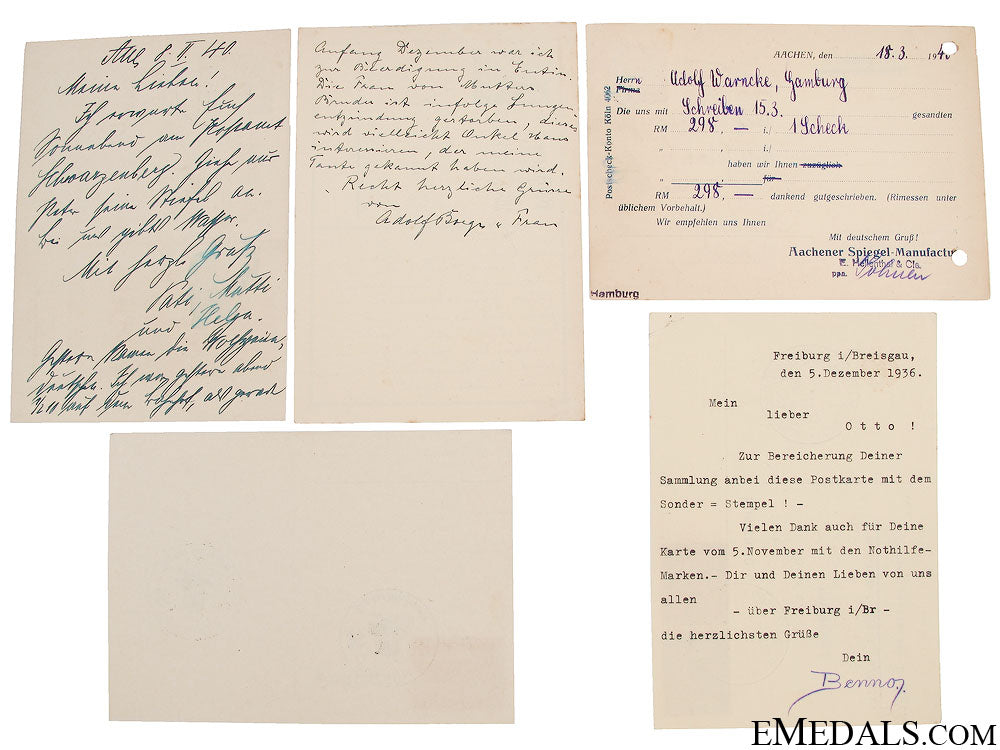 Aue, 8. II. 40.
Meine Lieben!
Ich erwarte Euch
Sonnabend am Postamt
Schwarzenberg. Gieße, nur
seine Stiefel an.
bei uns gibts Wasser.
Mit herzl. Gruß
Vati, Mutti
und Helga.
Gestern kamen die
Ich war gestern abend
auf dem Bahnhof, als gerade
Anfang Dezember war ich
zur Beerdigung in Eutin.
Die Frau von Mutters
Bruder ist infolge Lungen
entzündung gestorben, dieses
wird vielleicht Onkel Hans
interessieren, der meine
Tante gekannt haben wird.
Recht herzliche Grüsse
von
Adolf u Frau
AACHEN, den 18.3. 1940
Herrn Adolf Warncke, Hamburg
Firma
Die uns mit Schreiben 15.3. gesandten
RM 298, — i./ 1 Scheck
" " i./
haben wir Ihnen zuzüglich
" für
RM 298, — dankend gutgeschrieben. (Rimessen unter
üblichem Vorbehalt.)
Wir empfehlen uns Ihnen
Mit deutschem Gruß!
Aachener Spiegel-Manufactu
& Cie.
ppa.
Postscheck-Konto Köln 4062
Hamburg
Freiburg i/Breisgau,
den 5.Dezember 1936.
Mein
lieber
O t t o !
Zur Bereicherung Deiner
Sammlung anbei diese Postkarte mit dem
Sonder = Stempel ! -
Vielen Dank auch für Deine
Karte vom 5.November mit den Nothilfe-
Marken.- Dir und Deinen Lieben von uns
allen
- über Freiburg i/Br -
die herzlichsten Grüße
Dein
Benno.
EMEDALS.COM